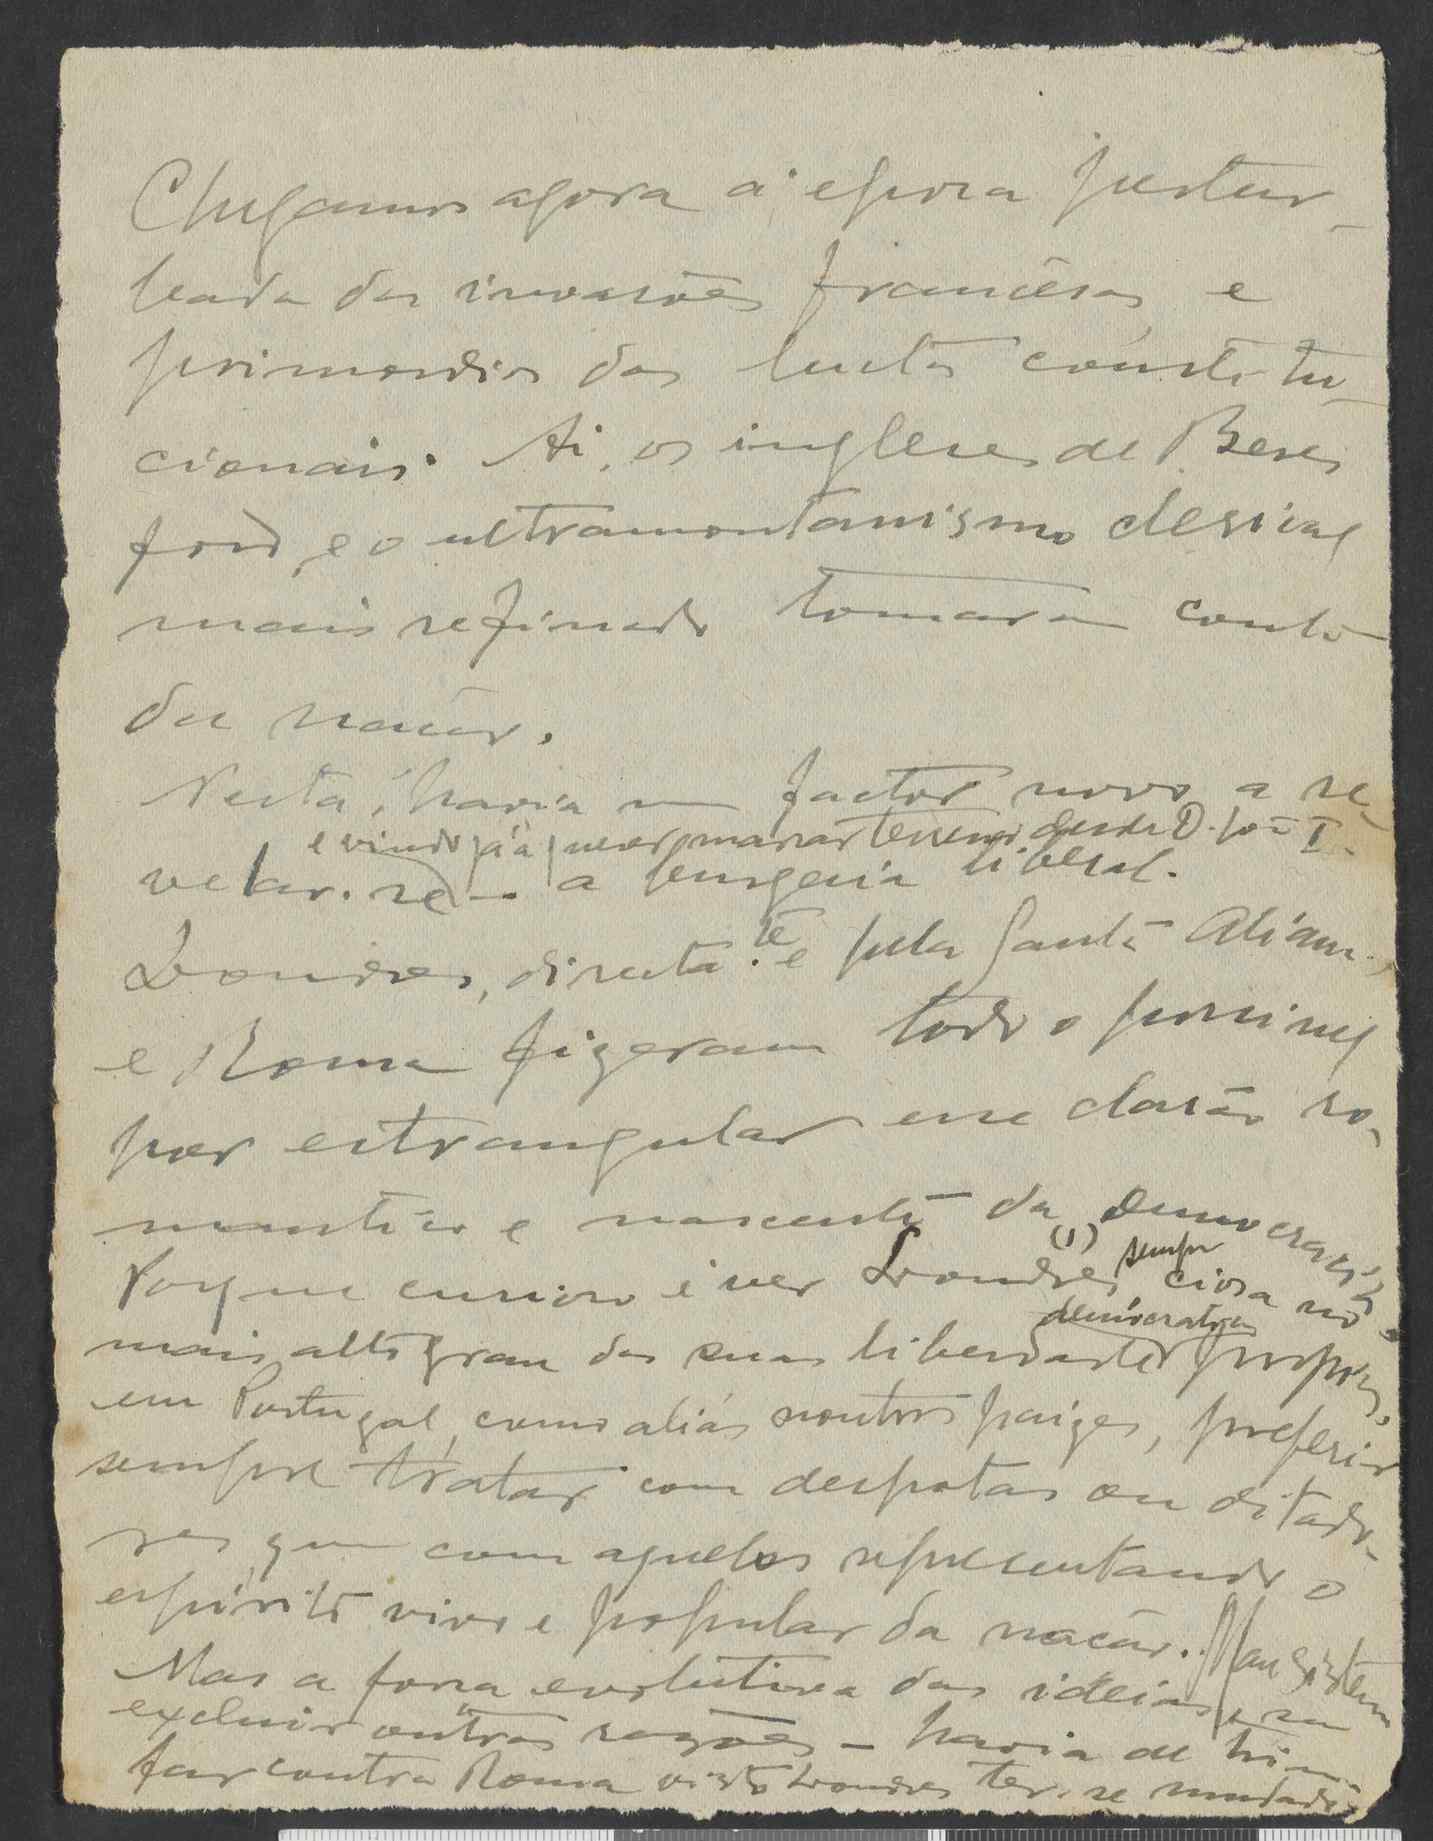 Chegamos agora á epoca pertur-
bada das invasões francêsas e
primordios das lutas constitu-
cionais. Ai, os ingleses de Beres
ford, e o ultramontanismo clerical
mais refinado tomaram conta
da nação.
Nesta, havia um factor novo a re-
e vindo já a querer marcar terreno desde D. João I
velar-se — a burgesia liberal.
Londres, directa.te e pela Santa Alian.
e Roma fizeram todo o possivel
por estrangular esse clarão ro-
mantico e nascente da Democracia.
(1) sempre
Porque curioso é ver Londres, ciosa no
democraticas
mais alto grau das suas liberdades proprias,
em Portugal, como aliás noutros paizes, preferir
sempre tratar com despotas ou ditado-
res, que com aqueles representando o
espirito vivo e popular da nação. // Mau sistema
Mas a força evolutiva das ideias, sem
excluir outras razões — havia de triun
far contra Roma visto Londres ter-se mudado